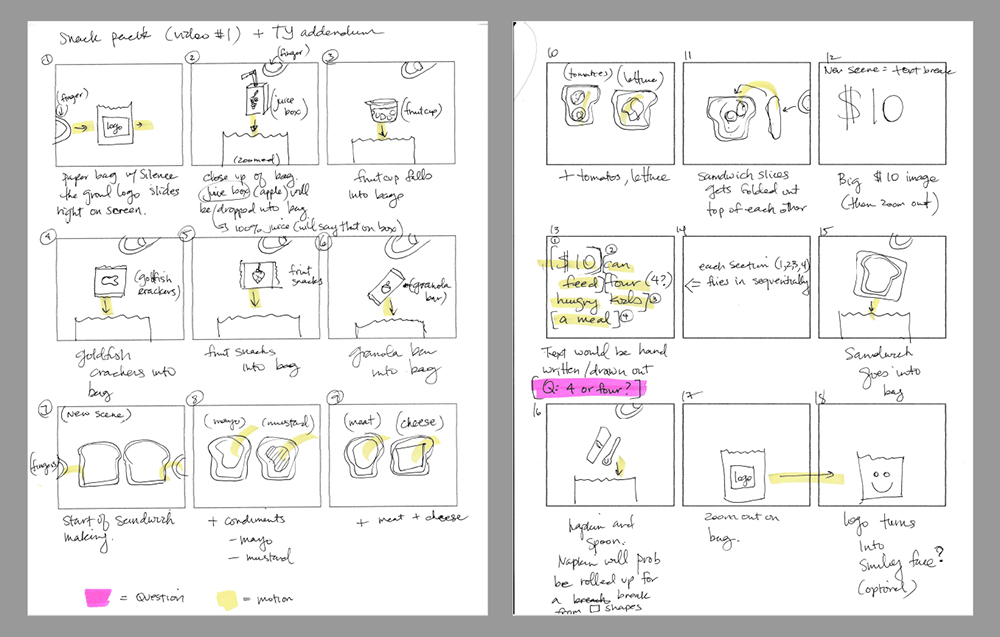 Snack pack (video #1) + TY addendum
1
(finger)
logo
paper bag w/ Silence
the growl logo slides
right on screen.
2
(finger)
(juice
box)
(zoomed)
close up of bag.
juice box (apple) will
be dropped into bag
↳ 100% juice (will say that on box)
3
(fruit cup)
fruit cup falls
into bag
4
(goldfish
crackers)
goldfish
crackers into
bag
5
fruit
snacks
fruit snacks
into bag
6
granola
bar)
granola bar
into bag
7
(New scene)
(fingers)
Start of sandwich
making.
8
(mayo)
(mustard)
+ condiments
- mayo
- mustard
9
(meat)
(cheese)
+ meat + cheese
= Question
= motion
10
(tomatoes)
(lettuce)
+ tomatos, lettuce
11
Sandwich slices
gets folded out
top of each other
12
New scene = text break
$10
Big $10 image
(then zoom out)
13
1
[$10]
2
[can
feed] [four (4?)
hungry kids] 3
[a meal] 4
Text would be hand
written/drawn out
[Q: 4 or four?]
14
each section (1,2,3,4)
<= flies in sequentially
15
Sandwich
goes into
bag
16
napkin and
spoon.
Napkin will prob
be rolled up for
a break
from □ shapes
17
logo
zoom out on
bag.
18
logo turns
into
smiley face?
(optional)